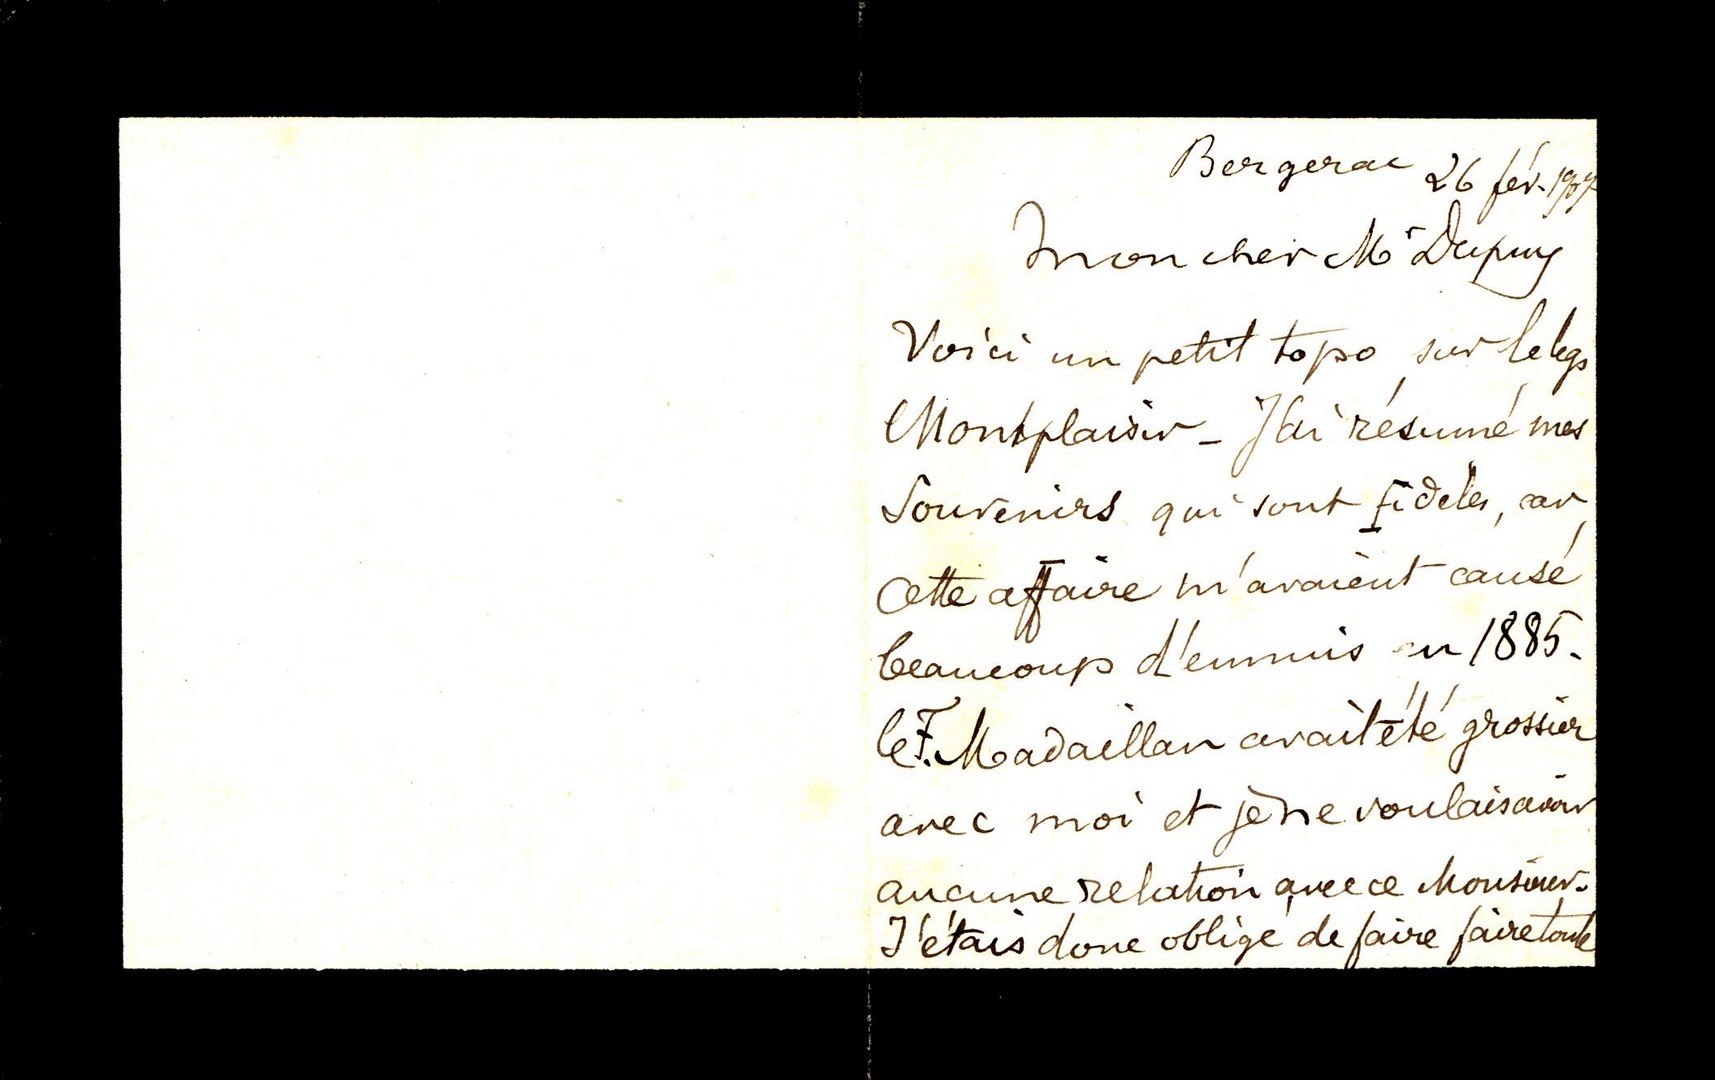 Bergerac 26 fév. 1907
Mon cher Mr Dupuy
Voici un petit topo sur le legs
Montplaisir _ J'ai résumé mes
Souvenirs qui sont fidèles, car
cette affaire m'avaient causé
beaucoup d'ennuis en 1885.
le F. Madaillan avait été grossier
avec moi et je ne voulais avoir
aucune relation avec ce Monsieur.
J'étais donc obligé de faire faire toute